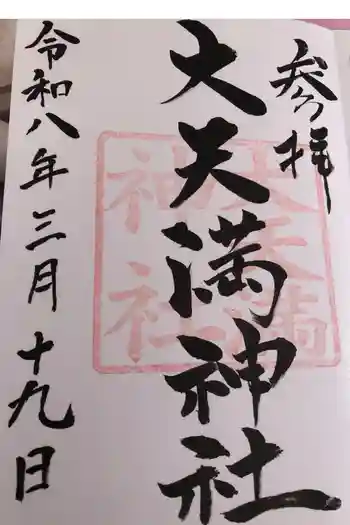 参拝
大天満神社
令和八年三月十九日
大天満
神社